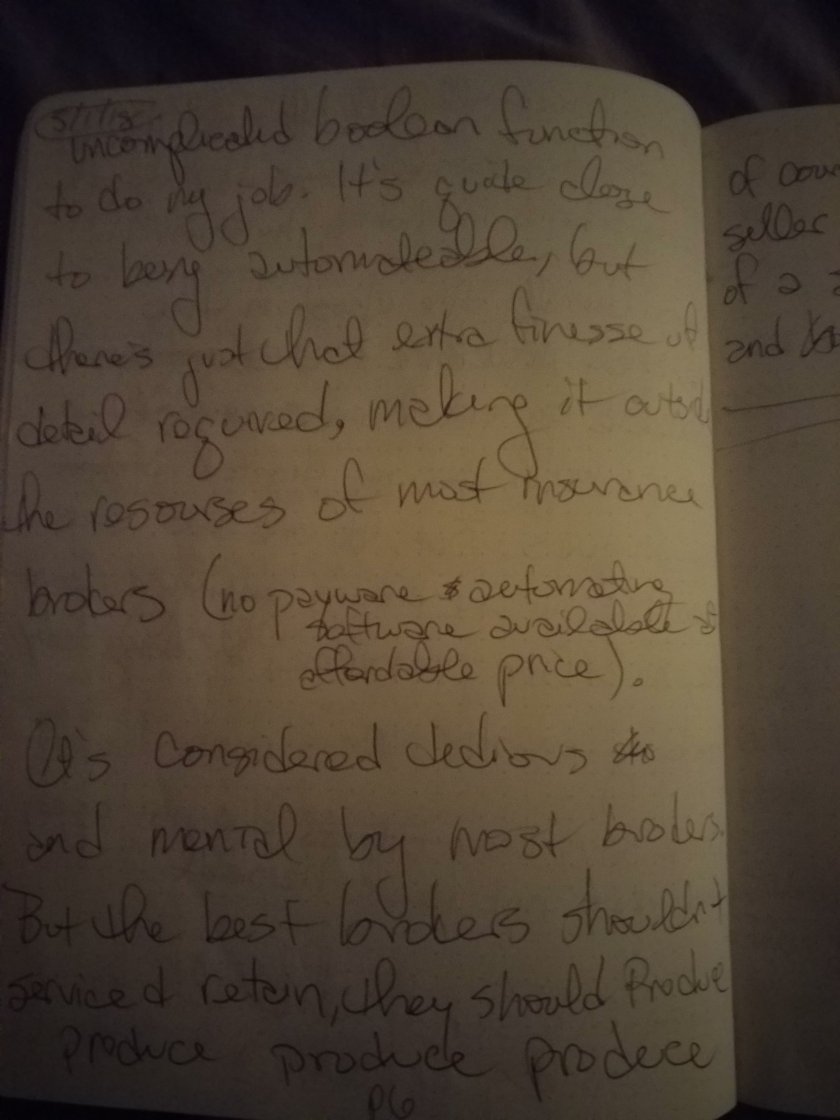 5/1/18
uncomplicated boolean function
to do my job. It's quite close
to being automateable, but
there's just that extra finesse of
detail required, making it outsid
the resourses of most insurance
brokers (no payware automating
software available
affordable price).
It's considered
and menial by most brokers.
But the best brokers shouldn't
service & retain, they should Produce
produce produce produce
P6
of cour
seller
of a
and